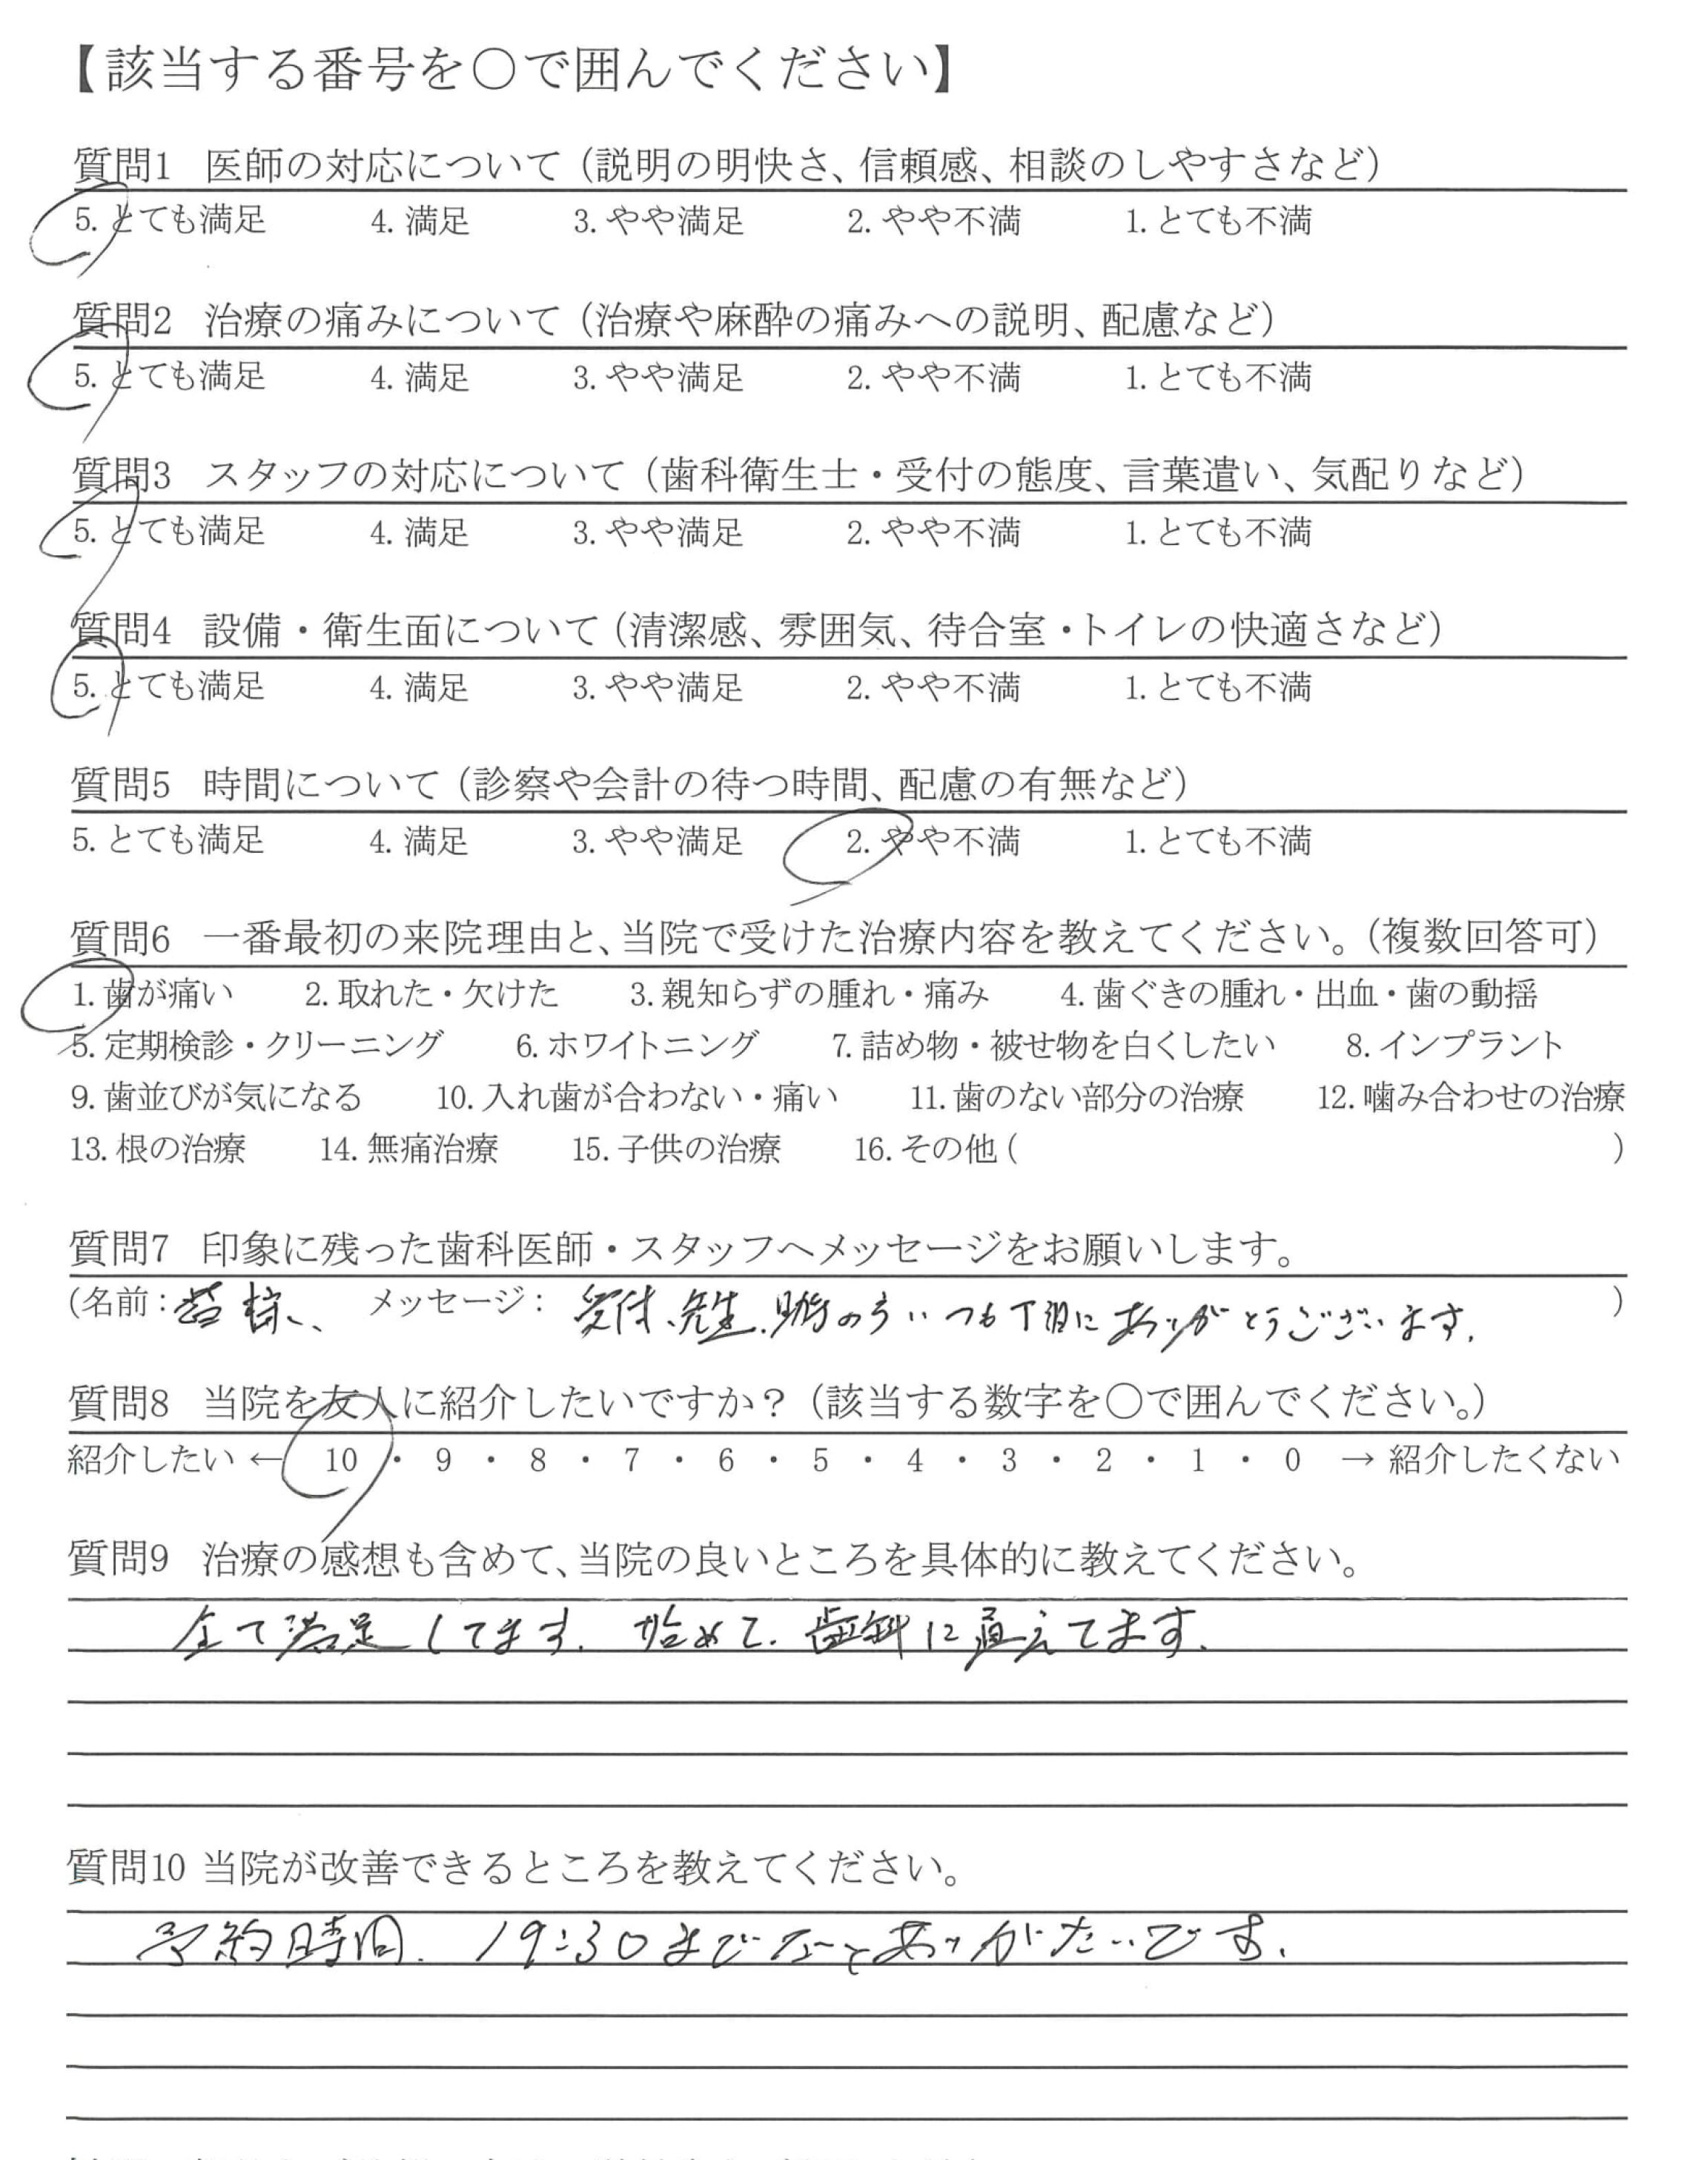 【該当する番号を○で囲んでください】
質問1 医師の対応について（説明の明快さ、信頼感、相談のしやすさなど）
5. とても満足 4. 満足 3. やや満足 2. やや不満 1. とても不満
質問2 治療の痛みについて（治療や麻酔の痛みへの説明、配慮など）
5. とても満足 4. 満足 3. やや満足 2. やや不満 1. とても不満
質問3 スタッフの対応について（歯科衛生士・受付の態度、言葉遣い、気配りなど）
5. とても満足 4. 満足 3. やや満足 2. やや不満 1. とても不満
質問4 設備・衛生面について（清潔感、雰囲気、待合室・トイレの快適さなど）
5. とても満足 4. 満足 3. やや満足 2. やや不満 1. とても不満
質問5 時間について（診察や会計の待つ時間、配慮の有無など）
5. とても満足 4. 満足 3. やや満足 2. やや不満 1. とても不満
質問6 一番最初の来院理由と、当院で受けた治療内容を教えてください。（複数回答可）
1. 歯が痛い 2. 取れた・欠けた 3. 親知らずの腫れ・痛み 4. 歯ぐきの腫れ・出血・歯の動揺
5. 定期検診・クリーニング 6. ホワイトニング 7. 詰め物・被せ物を白くしたい 8. インプラント
9. 歯並びが気になる 10. 入れ歯が合わない・痛い 11. 歯のない部分の治療 12. 噛み合わせの治療
13. 根の治療 14. 無痛治療 15. 子供の治療 16. その他 ( )
質問7 印象に残った歯科医師・スタッフへメッセージをお願いします。
(名前： 皆様、 メッセージ： 受付、先生、いつも丁寧にありがとうございます。 )
質問8 当院を友人に紹介したいですか？（該当する数字を○で囲んでください。）
紹介したい ← 10 ・ 9 ・ 8 ・ 7 ・ 6 ・ 5 ・ 4 ・ 3 ・ 2 ・ 1 ・ 0 → 紹介したくない
質問9 治療の感想も含めて、当院の良いところを具体的に教えてください。
全て満足してます。始めて、歯科に通えてます。
質問10 当院が改善できるところを教えてください。
予約時間、19:30までだとありがたいです。